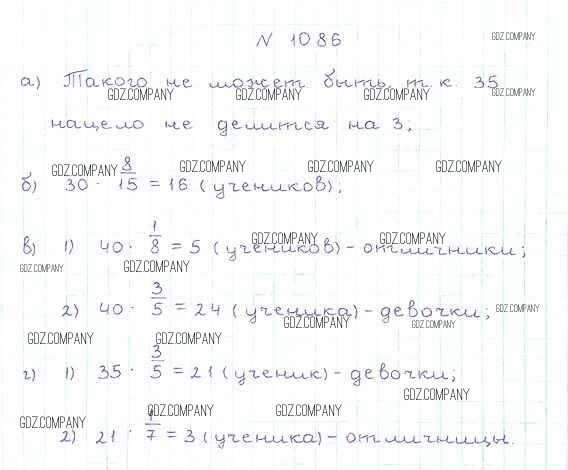 N 1086
а) Такого не может быть, т.к. 35
нацело не делится на 3;
б) 30 · 8/15 = 16 (учеников);
в) 1) 40 · 1/8 = 5 (учеников) - отличники;
2) 40 · 3/5 = 24 (ученика) - девочки;
г) 1) 35 · 3/5 = 21 (ученик) - девочки;
2) 21 · 1/7 = 3 (ученика) - отличницы.
GDZ.COMPANY
GDZ.COMPANY GDZ.COMPANY GDZ.COMPANY GDZ.COMPANY
GDZ.COMPANY GDZ.COMPANY GDZ.COMPANY GDZ.COMPANY
GDZ.COMPANY GDZ.COMPANY
GDZ.COMPANY GDZ.COMPANY
GDZ.COMPANY GDZ.COMPANY GDZ.COMPANY
GDZ.COMPANY GDZ.COMPANY
GDZ.COMPANY
GDZ.COMPANY GDZ.COMPANY GDZ.COMPANY